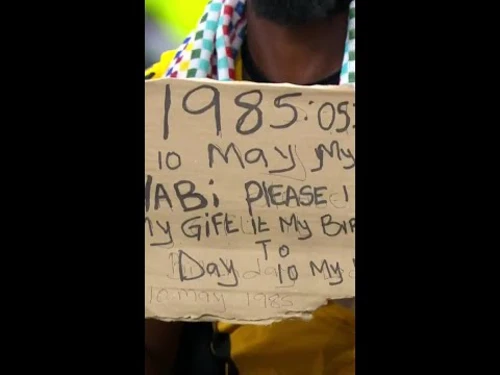 1985:05:
10 May My
ABi PLEASE I
My GiFt it My BiR
To
Day 10 My
10 may 1985